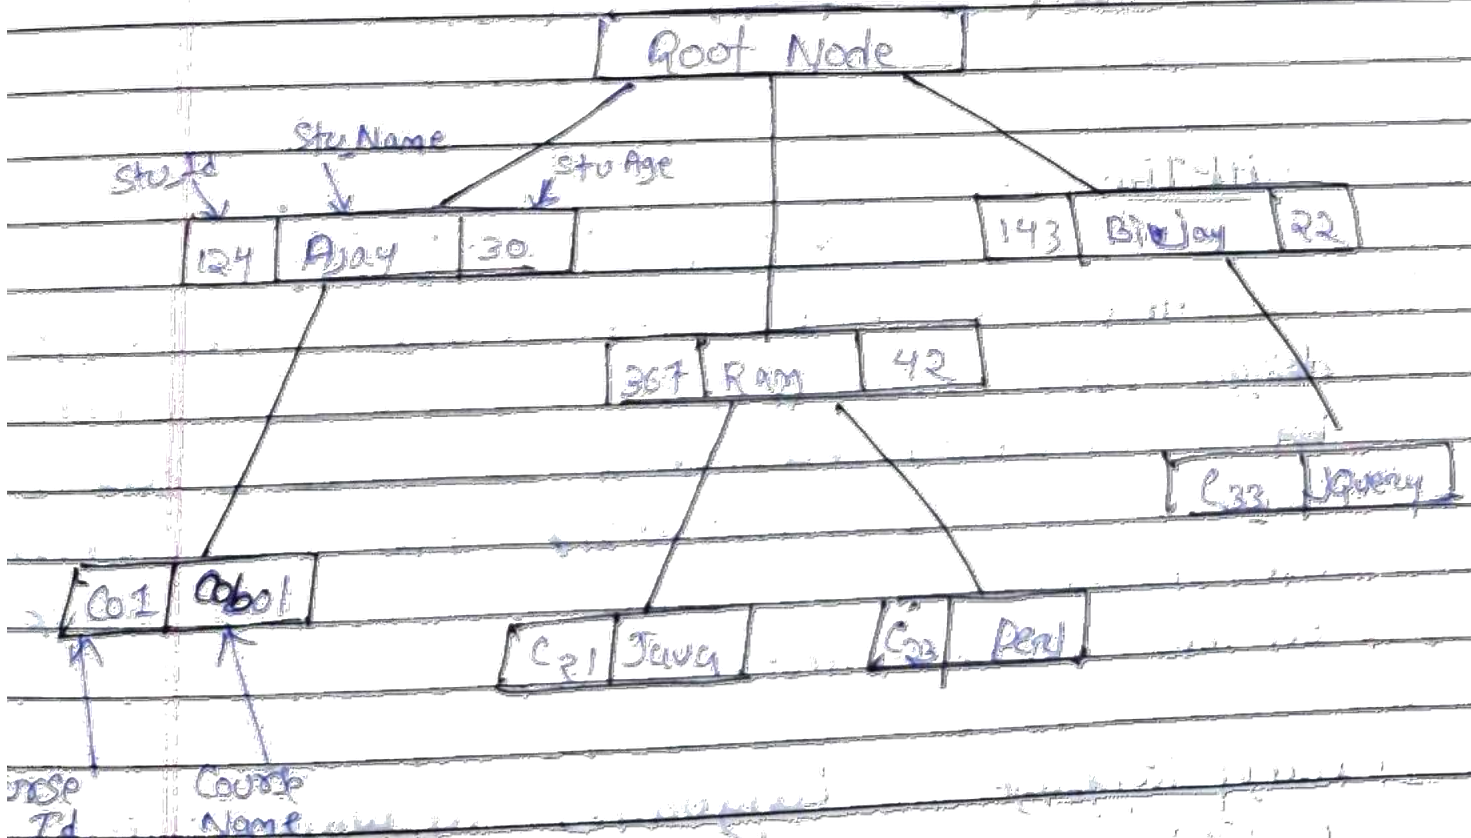 Root Node
Stu_Name
Stu_Id
Stu Age
124 Ajay 30
143 Birjay 22
367 Ram 42
C33 JQuery
Co1 Cobol
C21 Java
C23 Perl
Course
Name
Id